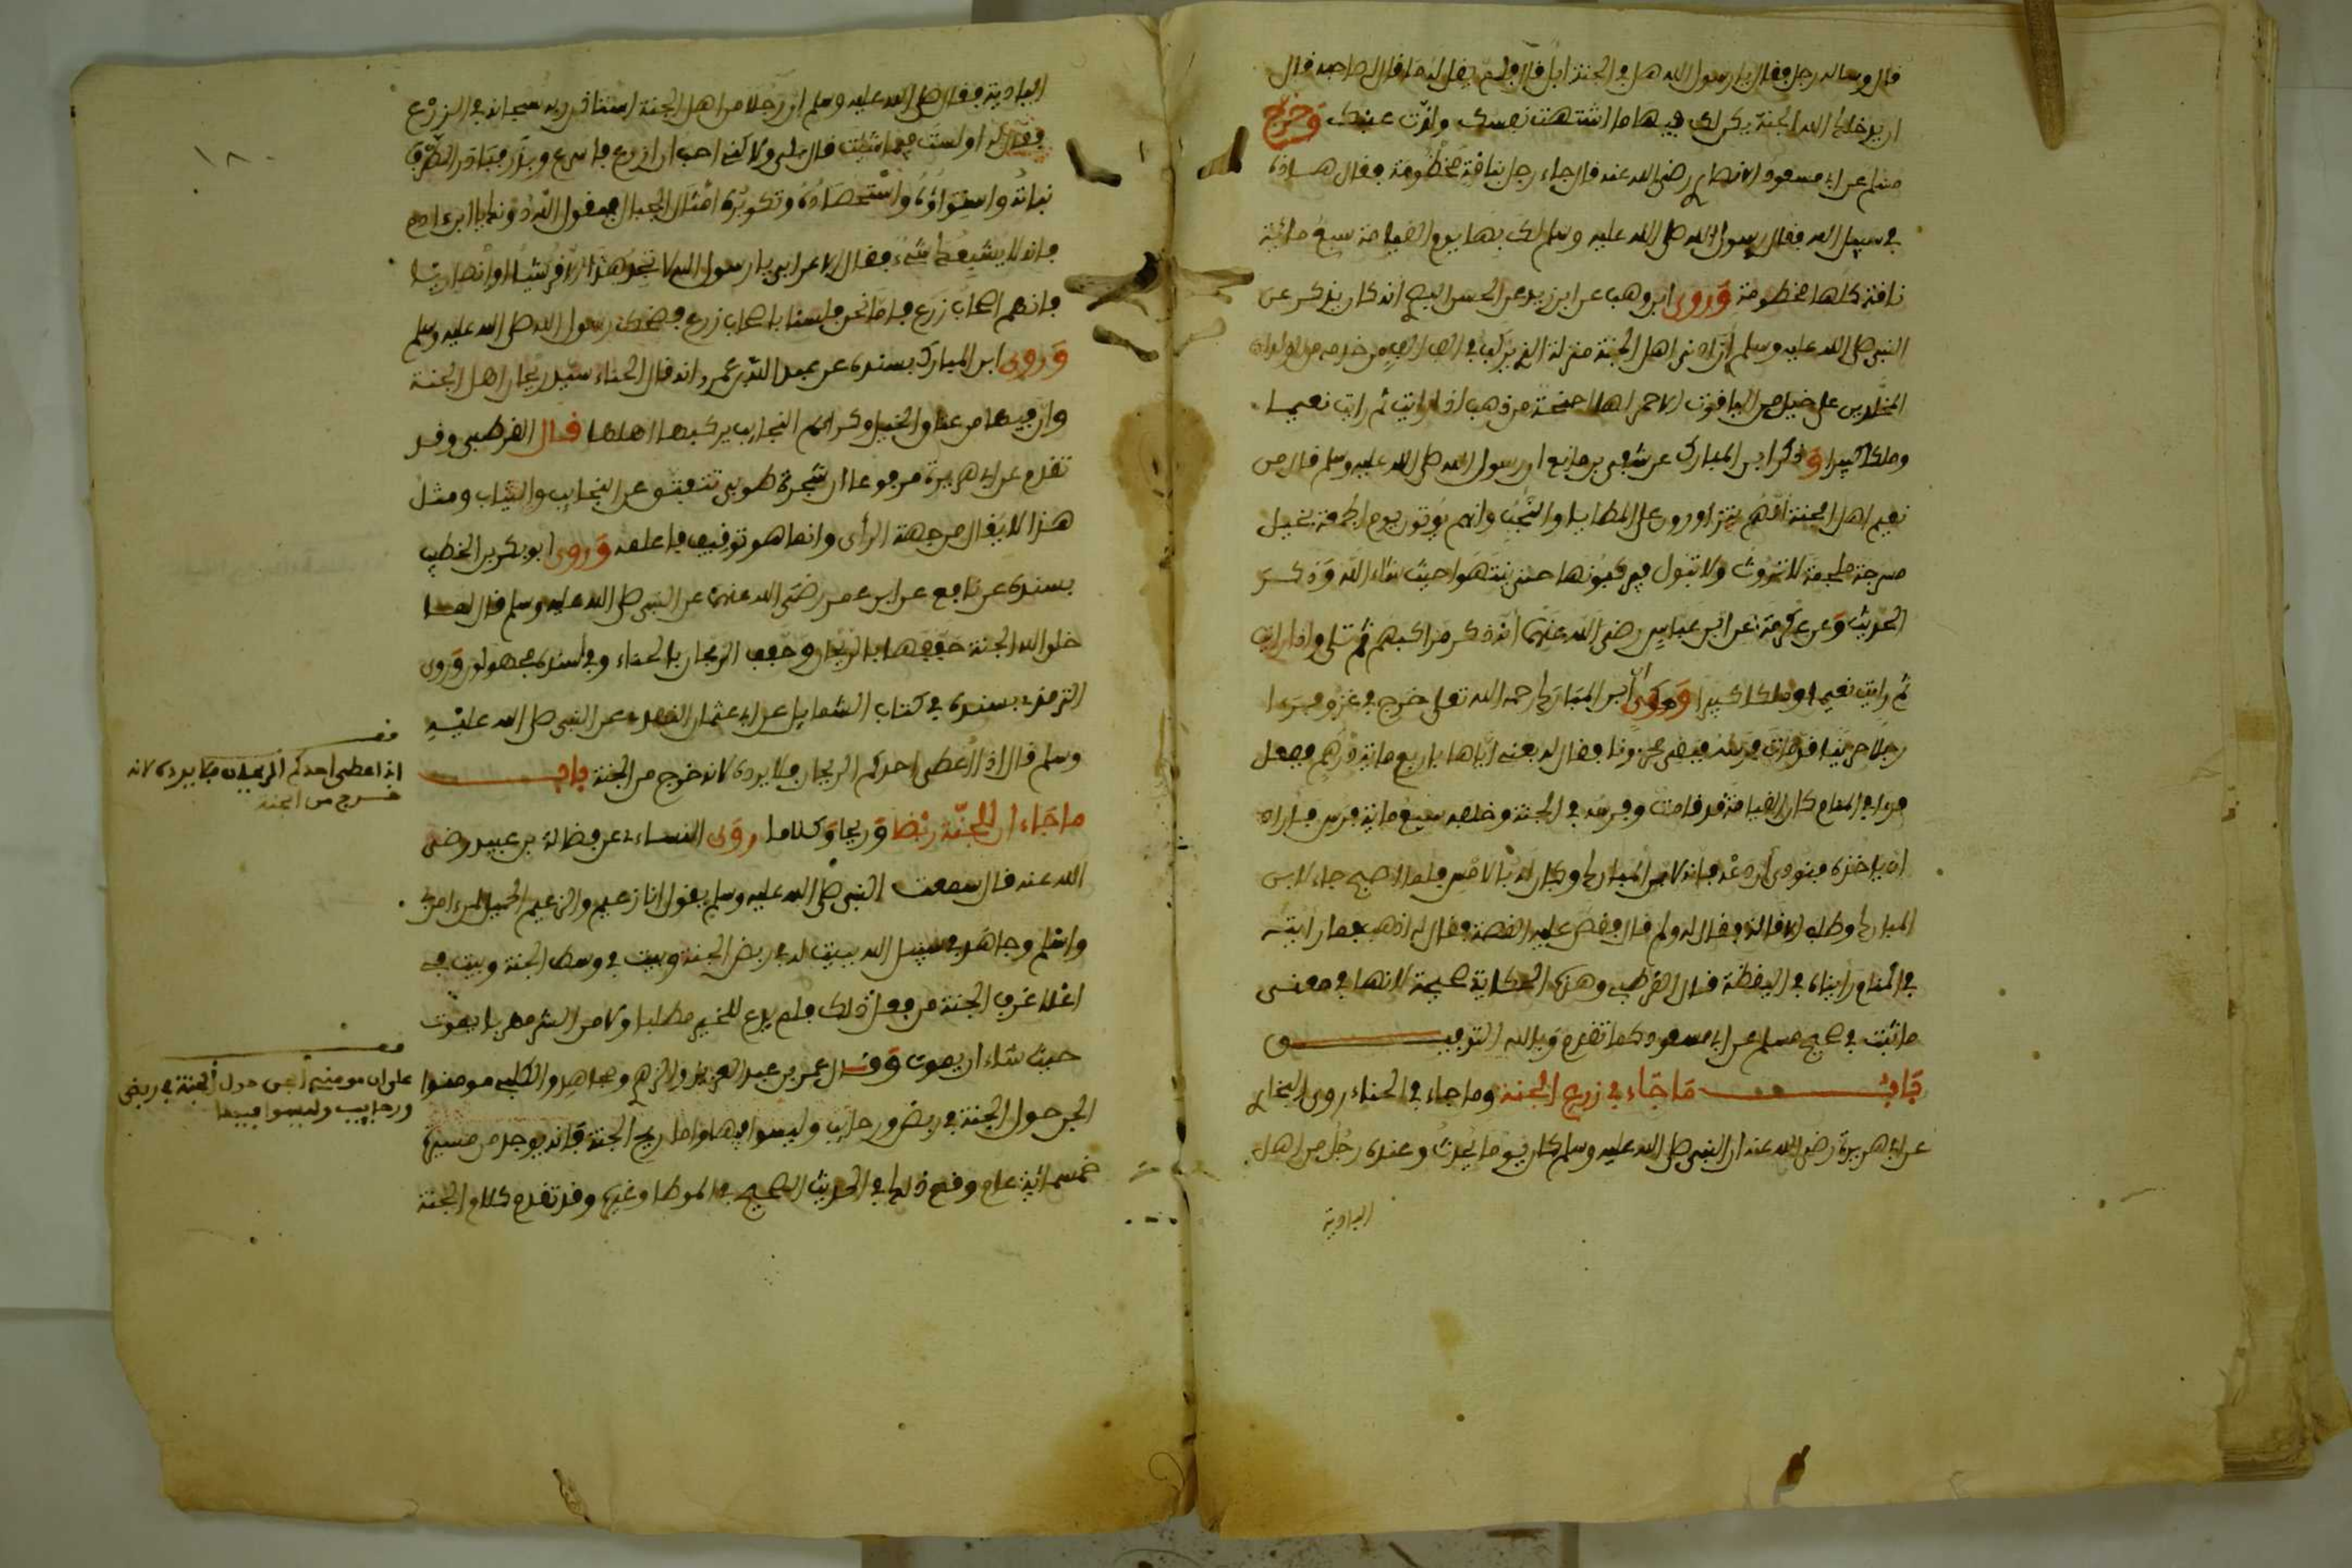 قال وساله رجل فقال يا رسول الله هل في الجنة ابل قال فلم يقل له ما قال لصاحبه قال
ان يدخلك الله الجنة يكن لك فيها ما اشتهت نفسك ولذت عينك وَخرج
مسلم عن ابي مسعود الانصاري رضي الله عنه قال جاء رجل بناقة مخطومة فقال هذه
في سبيل الله فقال رسول الله صلى الله عليه وسلم لك بها يوم القيامة سبع مائة
ناقة كلها مخطومة وَروى ابن وهب عن ابن زيد عن الحسن البصري انه كان يذكر عن
النبي صلى الله عليه وسلم ان ادنى اهل الجنة منزلة الذي يركب في الف الف من خدمه من الولدان
المخلدين على خيل من الياقوت الاحمر لها اجنحة من ذهب اذا رايت ثم رايت نعيما
وملكا كبيرا وَذكر ابن المبارك عن شفي بن ماتع ان رسول الله صلى الله عليه وسلم قال من
نعيم اهل الجنة انهم يتزاورون على المطايا والنجب وانهم يوتون يوم الجمعة بخيل
مسرجة ملجمة لا تروث ولا تبول فيركبونها حتى ينتهوا حيث شاء الله وَذكر
الحديث وَعن عكرمة عن ابن عباس رضي الله عنهما انه ذكر مراكبهم ثم تلى واذا رايت
ثم رايت نعيما وملكا كبيرا وَحكى ان ابن المبارك رحمه الله تعلى خرج في غزو فرءا
رجلا حزينا قد مات فرسه فبقي محزونا فقال له بعني اياها باربع مائة درهم ففعل
فرءا في المنام كان القيامة قد قامت وفرسه في الجنة وخلفه سبع مائة فرس فاراد
ان ياخذه فنودي ان دعه فانه لابن المبارك وكان لك بالامس فلما اصبح جاء لابن
المبارك وطلب الاقالة فقال له ولم قال فقص عليه القصة فقال له اذهب فما رايته
في المنام رايناه في اليقظة قال القرطبي وهذه الحكاية صحيحة لانها في معنى
ما ثبت في صحيح مسلم عن ابي مسعود كما تقدم وبالله التوفيق
بَابٌ مَا جَاء في زرع الجنة وما جاء في الحناء روى البخاري
عن ابي هريرة رضي الله عنه ان النبي صلى الله عليه وسلم كان يوما يحدث وعنده رجل من اهل
البادية
١٨٠
البادية فقال صلى الله عليه وسلم ان رجلا من اهل الجنة استاذن ربه سبحانه في الزرع
فقال له اولست فيما شئت قال بلى ولاكني احب ان ازرع فاسرع وبذر فبادر الطرف
نباته واستواؤه واستحصاده وتكويره امثال الجبال فيقول الله دونك يا ابن ءادم
فانه لا يشبعك شيء فقال الاعرابي يا رسول الله لا تجد هذا الا قرشيا او انصاريا
فانهم اصحاب زرع فاما نحن فلسنا باصحاب زرع فضحك رسول الله صلى الله عليه وسلم
وَروى ابن المبارك بسنده عن عبد الله بن عمرو انه قال الحناء سيد ريحان اهل الجنة
وان فيها من عتاق الخيل وكرائم النجائب يركبها اهلها قال القرطبي وقد
تقدم عن ابي هريرة مرفوعا ان شجرة طوبى تتفتق عن النجايب والثياب ومثل
هذا لا يقال من جهة الرأى وانما هو توقيف فاعلمه وَروى ابو بكر بن الخطيب
بسنده عن نافع عن ابن عمر رضي الله عنهما عن النبي صلى الله عليه وسلم قال لما
خلق الله الجنة حففها بالريحان وحفف الريحان بالحناء وفي سنده مجهولون وَروى
الترمذي بسنده في كتاب الشمايل عن ابي عثمان النهدي عن النبي صلى الله عليه
وسلم قال اذا اعطي احدكم الريحان فلا يرده لانه خرج من الجنة باب
ما جَاء ان للجنّة ربضا وَريحا وَكلاما روى النساءي عن فضالة بن عبيد رضي
الله عنه قال سمعت النبي صلى الله عليه وسلم يقول انا زعيم والزعيم الحميل لمن ءامن بي
واسلم وجاهد في سبيل الله ببيت له في ربض الجنة وبيت في وسط الجنة وبيت في
اعلا غرف الجنة من فعل ذلك فلم يدع للخير مطلبا ولا من الشر مهربا يموت
حيث شاء ان يموت وَقال عمر بن عبد العزيز والزهري ومجاهد والكلبي مومنوا
الجن حول الجنة في ربض ورحاب وليسوا فيها واما ريح الجنة فانه يوجد من مسيرة
خمسمائة عام وقع ذلك في الحديث الصحيح في الموطا وغيره وقد تقدم كلام الجنة
قف
اذا اعطي احدكم الريحان فلا يرده لانه
خرج من الجنة
قف
على ان مومنين الجن حول الجنة في ربض
ورحايب وليسوا فيها